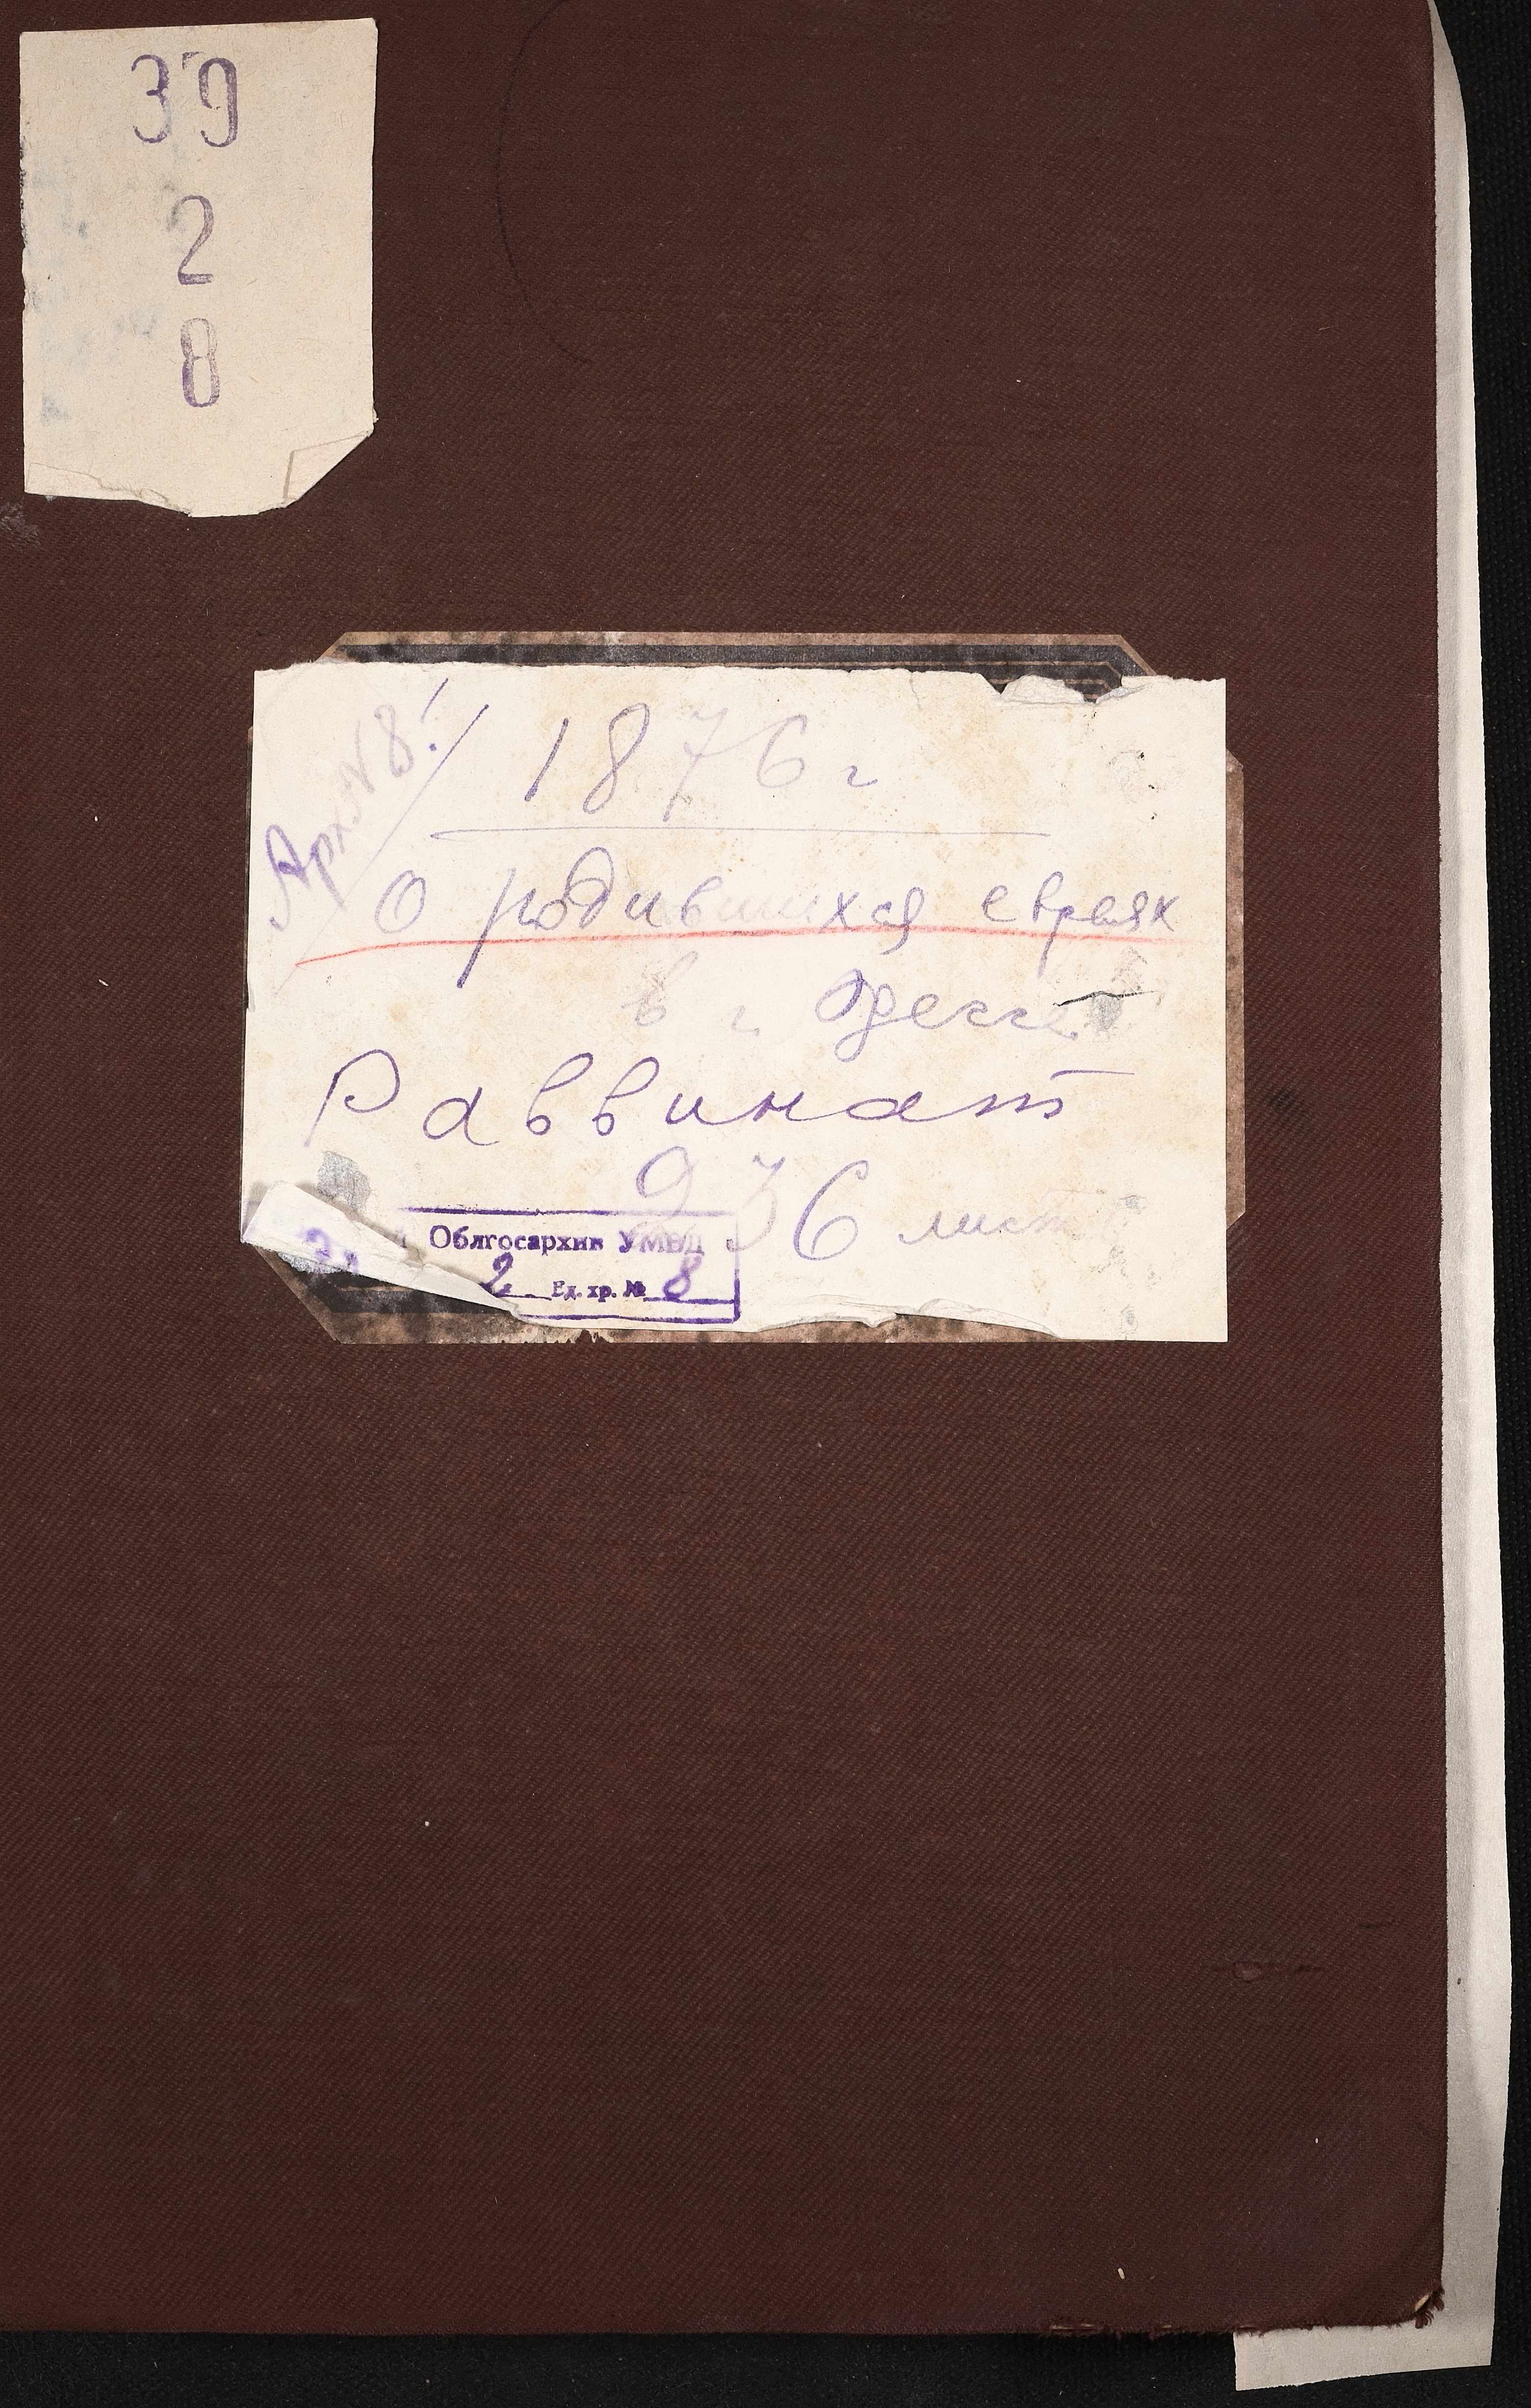 39
2
8
Арх. N 8!
1876 г
О родившихся евреях
в г. Одессе
Раввинат
936 лист
Облгосархив УМВД
2 Ед. хр. № 8